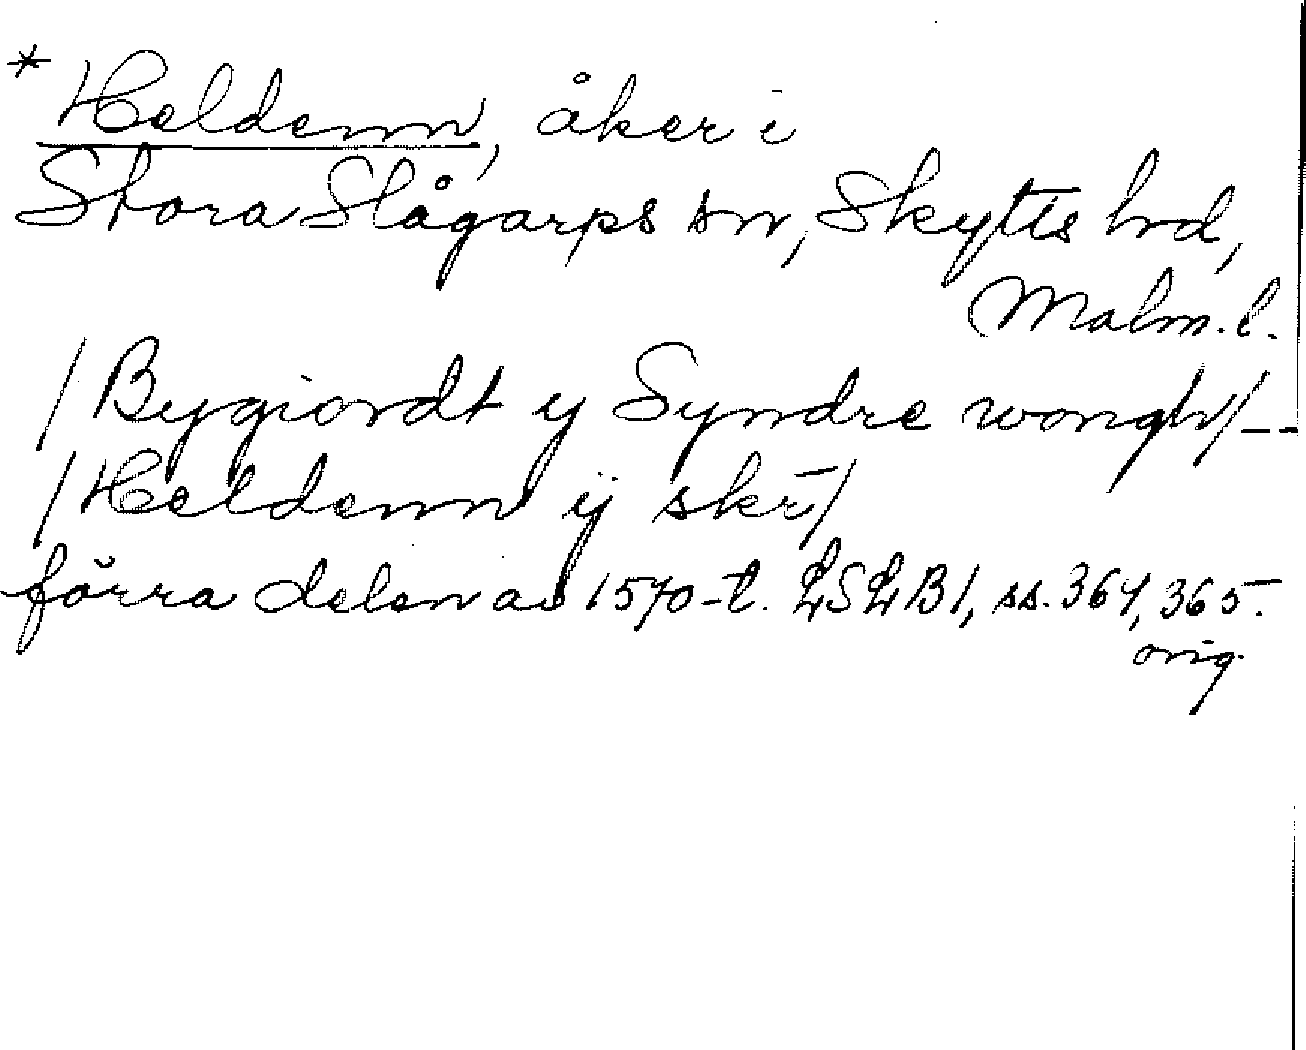 * Heldenn, åker i
Stora Slågarps sn, Skytts hd,
Malm. l.
/Bygiordt y Syndre wongh/--
/Heldenn ij skr̄/
förra delen av 1570-t. LSLB1, ss. 364, 365.
orig.